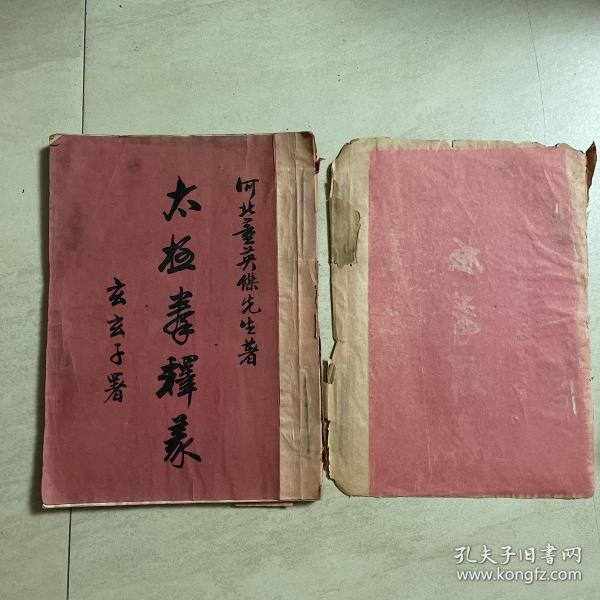 河北董英傑先生著
太極拳釋義
玄玄子署
孔夫子旧書网
www.kongfz.com